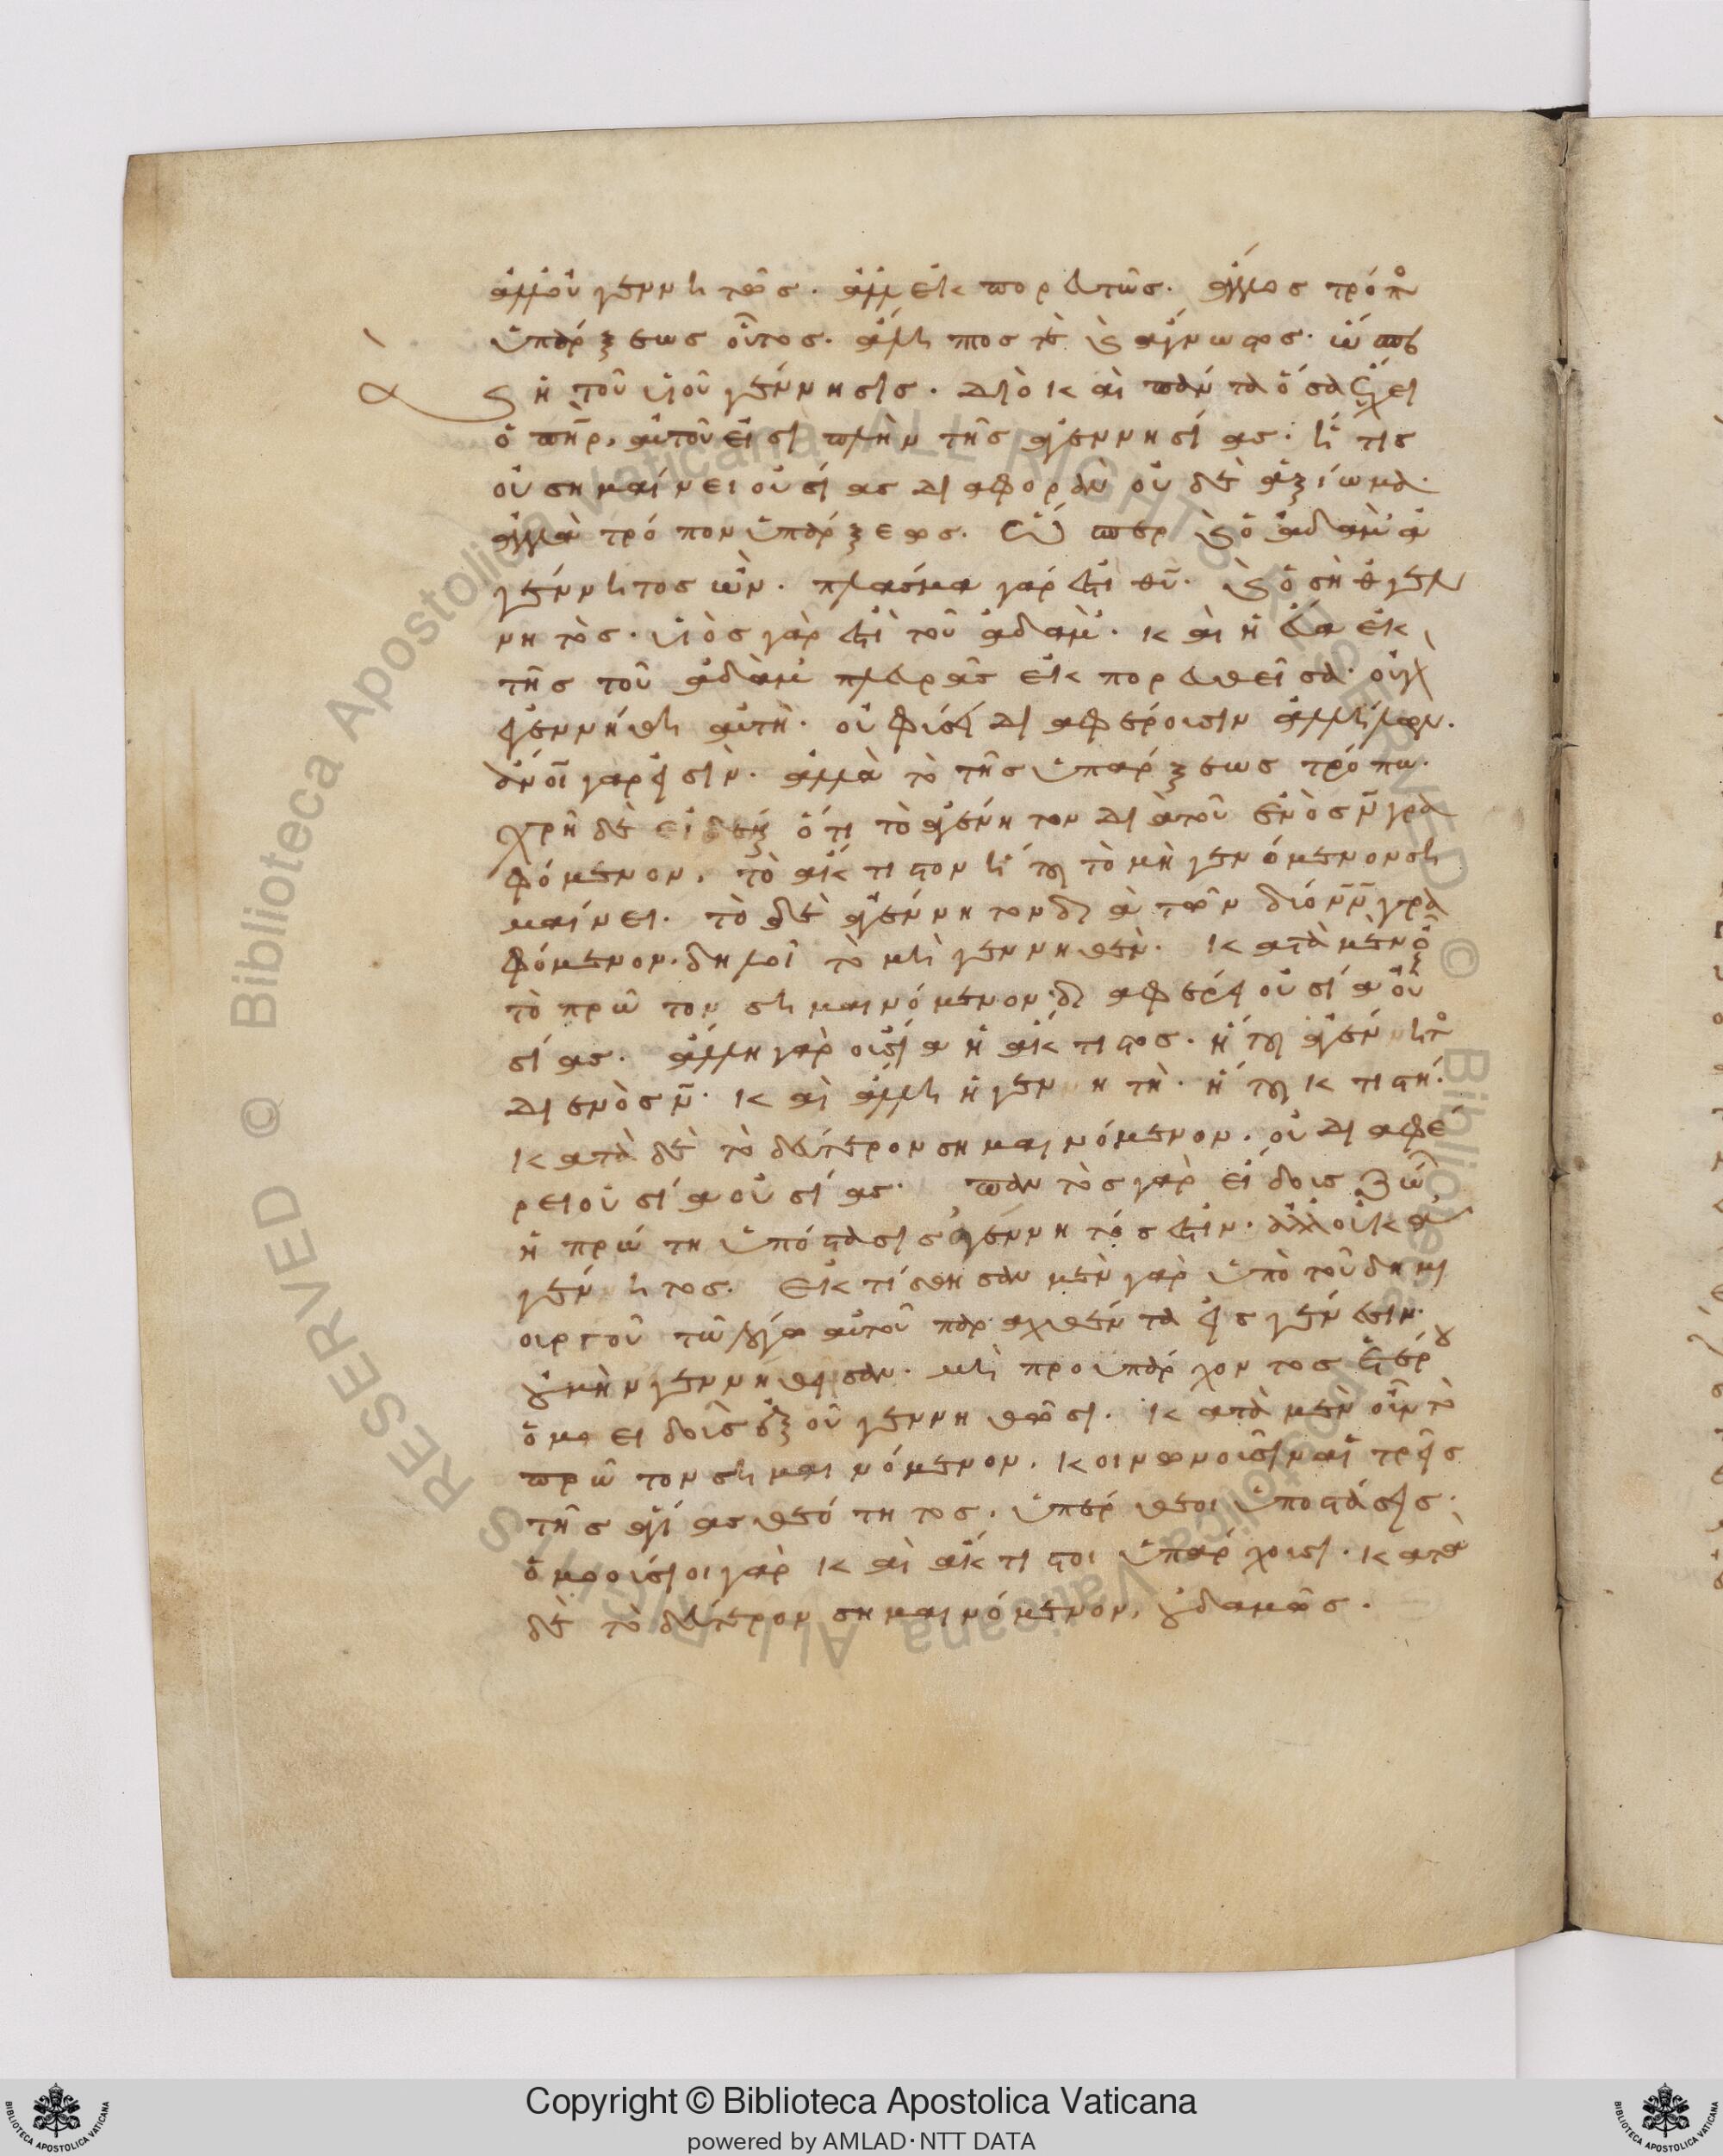 ἀλλ' οὐ γεννητῶς. ἀλλ' ἐκπορευτῶς. ἄλλος τρόπος
ὑπάρξεως οὗτος. ἄληπτός τε καὶ ἄγνωστος. ὥσπερ
καὶ ἡ τοῦ υἱοῦ γέννησις. διὸ καὶ πάντα ὅσα ἔχει
ὁ πηρ, αὐτοῦ εἰσι πλὴν τῆς ἀγεννησίας. ἥτις
οὐ σημαίνει οὐσίας διαφορὰν οὐδὲ ἀξίωμα.
ἀλλὰ τρόπον ὑπάρξεως. ὥσπερ καὶ ὁ ἀδὰμ ἀ
γέννητος ὤν. πλάσμα γάρ ἐστι θυ. καὶ ὁ σὴθ γεν
νητός. υἱὸς γὰρ ἐστὶ τοῦ ἀδάμ. καὶ ἡ εὔα ἐκ
τῆς τοῦ ἀδὰμ πλευρᾶς ἐκπορευθεῖσα. οὐ γὰρ
ἐγεννήθη αὐτή. οὐ φύσει διαφέρουσιν ἀλλήλων.
ἄνοι γάρ εἰσίν. ἀλλὰ τῷ τῆς ὑπάρξεως τρόπω.
χρὴ δὲ εἰδέναι ὅτι τὸ ἀγένητον διὰ τοῦ ἑνὸς ν γρα
φόμενον, τὸ ἄκτιστον ἤτοι τὸ μὴ γενόμενον ση
μαίνει. τὸ δὲ ἀγέννητον διὰ τῶν δύο νν γρα
φόμενον. δηλοῖ τὸ μὴ γεννηθέν. κατὰ μὲν οὖν
τὸ πρῶτον σημαινόμενον. διαφέρει οὐσία οὐ
σίας. ἄλλη γὰρ οὐσία ἡ ἄκτιστος. ἤτοι ἀγένητος
δι ἑνὸς ν. καὶ ἄλλη ἡ γενητή. ἤτοι κτιστή.
κατὰ δὲ τὸ δεύτερον σημαινόμενον. οὐ διαφέ
ρει οὐσία οὐσίας. παντὸς γὰρ εἴδους ζώων
ἡ πρώτη ὑπόστασις ἀγέννητός ἐστιν. ἀλλ' οὐκ ἀ
γένητος. ἐκτίσθησαν μὲν γὰρ ὑπὸ τοῦ δημι
ουργοῦ τῶ λόγω αὐτοῦ παραχθέντα εἰς γένεσιν.
οὐ μὴν γεννήθησαν. μὴ προυπάρχοντος ἑτέρου
ὁμοειδοῦς ἐξ οὗ γεννηθῶσι. κατὰ μὲν οὖν τὸ
πρῶτον σημαινόμενον. κοινωνοῦσιν αἱ τρεῖς
τῆς ἁγίας θεότητος. ὑπέρθεοι ὑποστάσεις.
ὁμοούσιοι γὰρ καὶ ἄκτιστοι ὑπάρχουσι. κατὰ
δὲ τὸ δεύτερον σημαινόμενον, οὐδαμῶς.
Copyright © Biblioteca Apostolica Vaticana
powered by AMLAD·NTT DATA